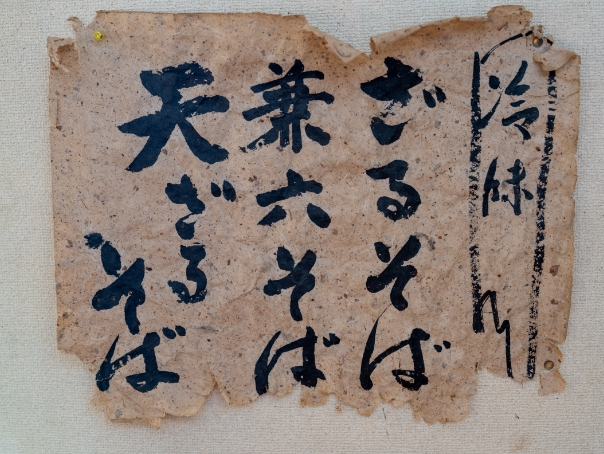 冷味
ざるそば
兼六そば
天ざるそば